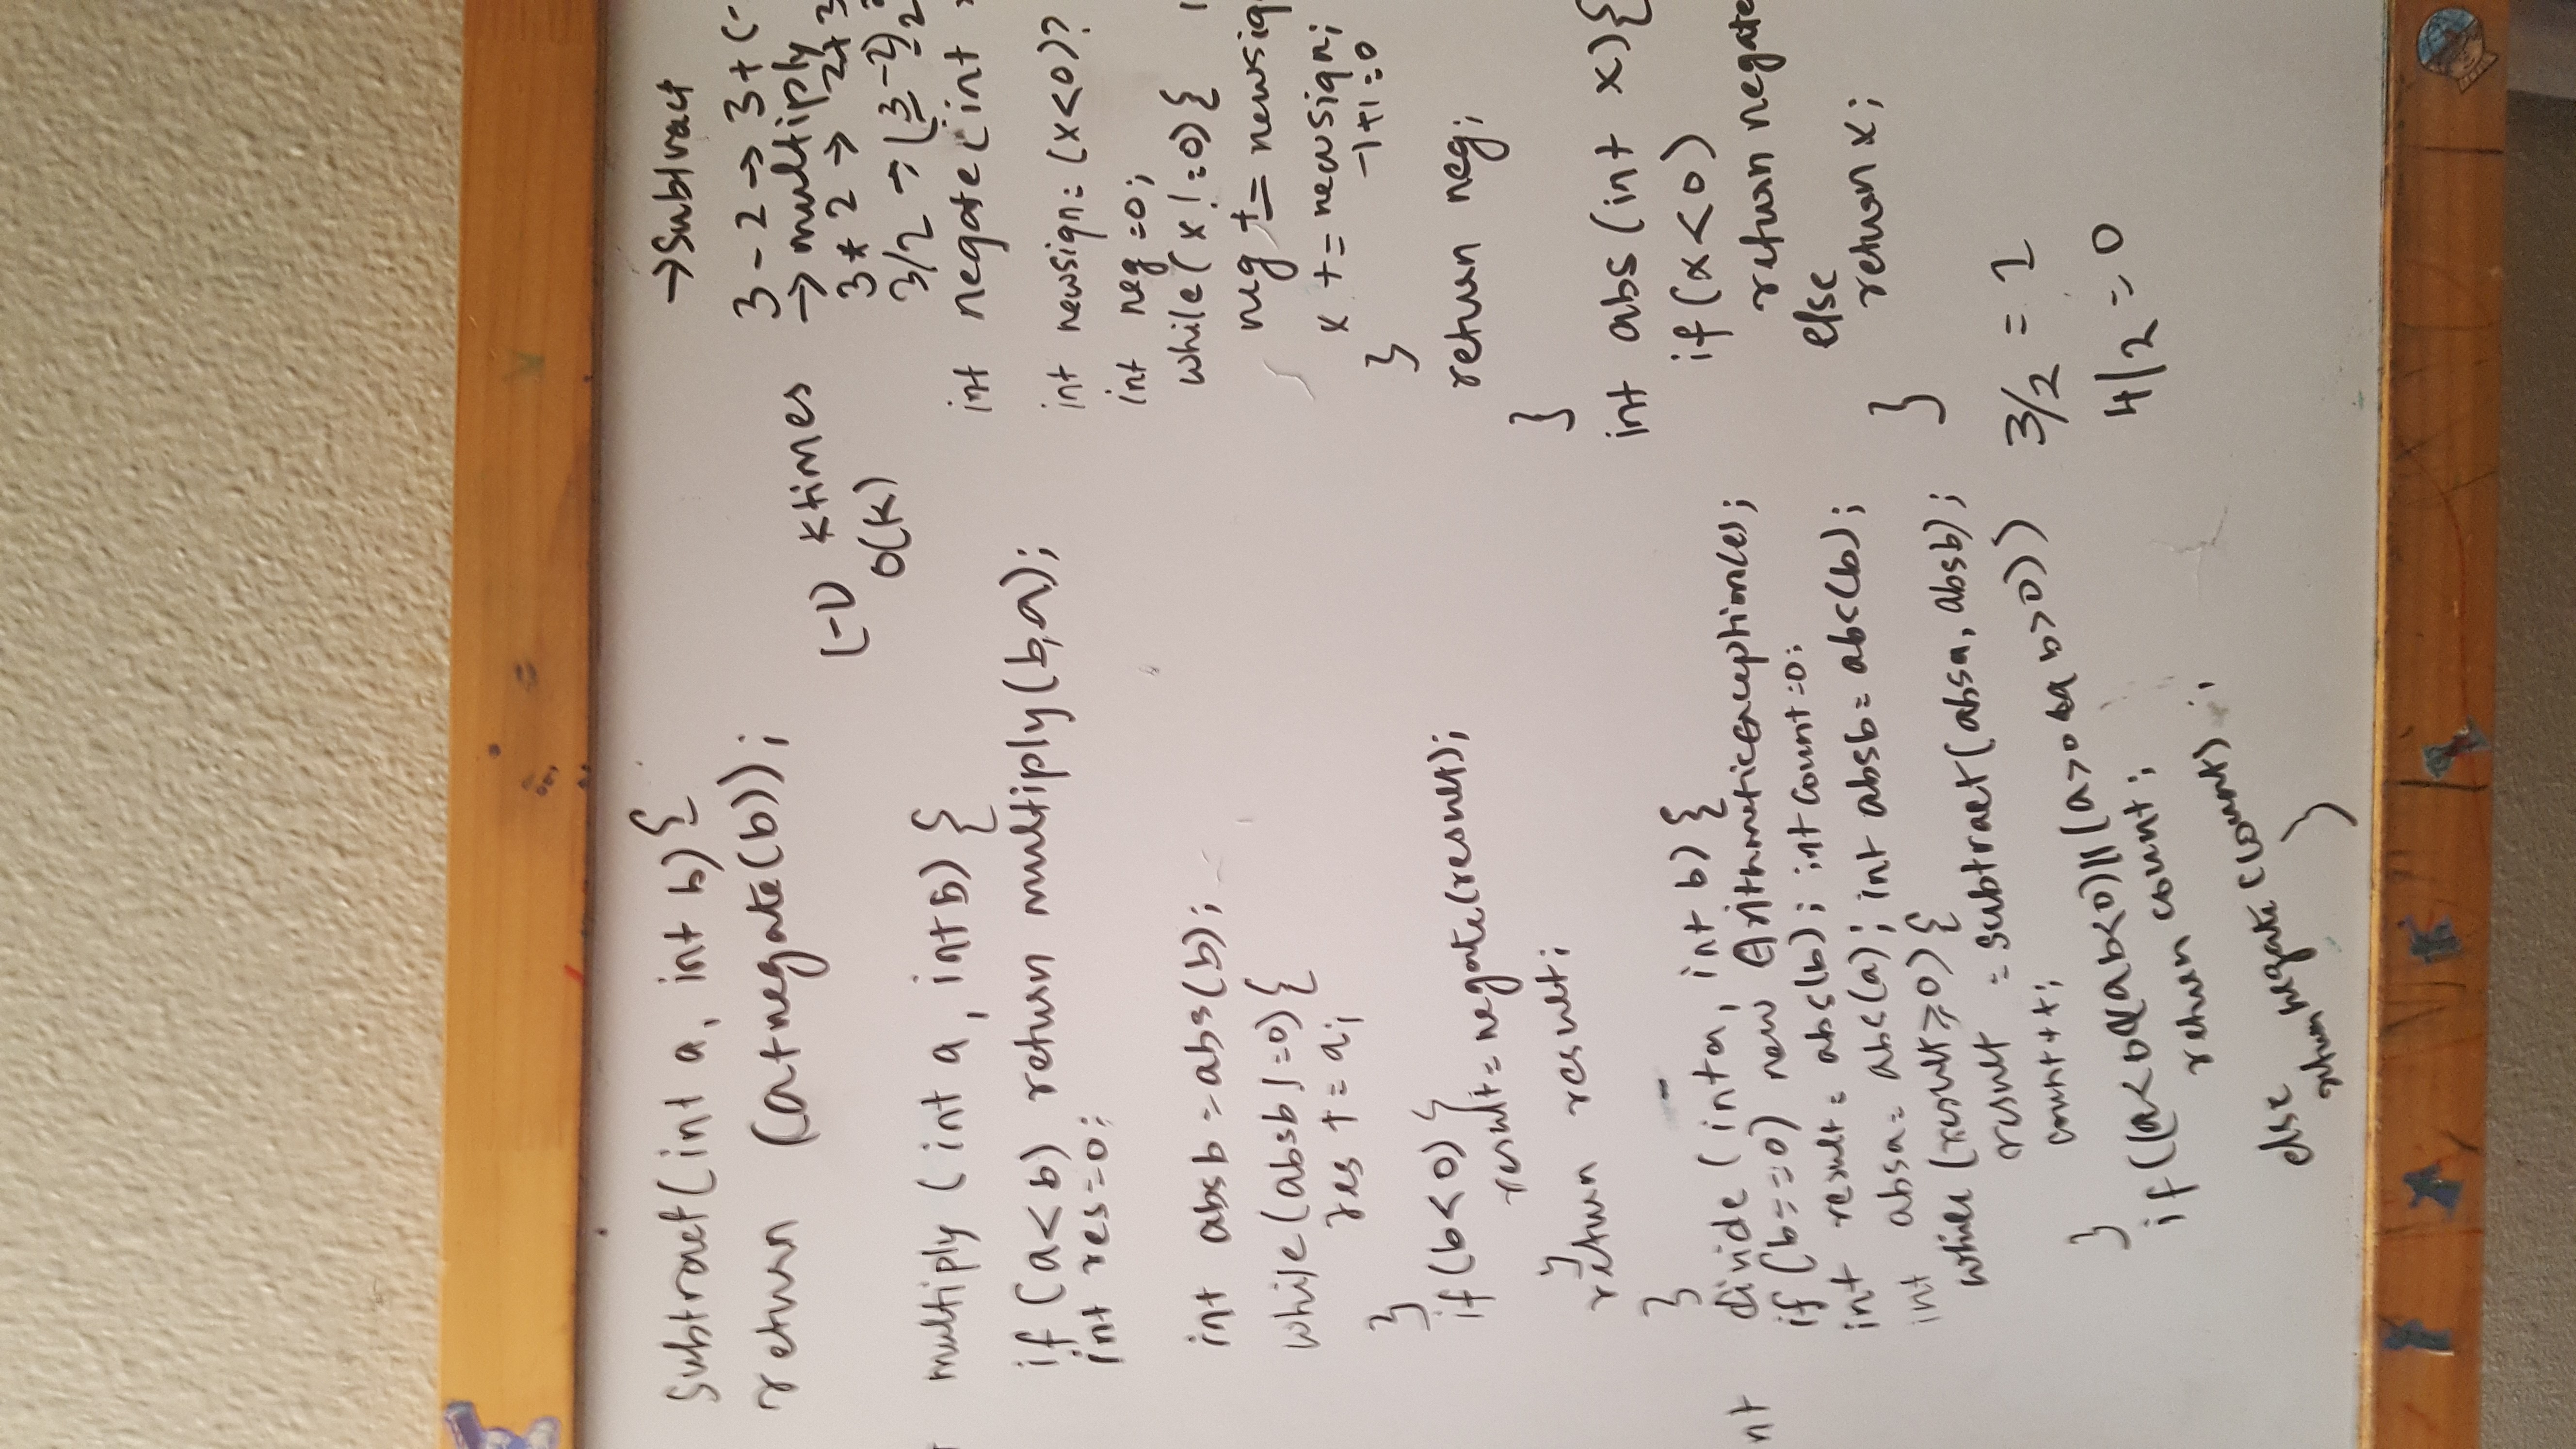 Subtract(int a, int b){
return (a+negate(b));
multiply (int a, int b) {
if (a<b) return multiply(b,a);
int res=0;
int absb=abs(b);
while(absb!=0){
res+=a;
}
if(b<0){
result=negate(result);
}
return result;
}
nt divide (int a, int b) {
if (b==0) new ArithmeticException(e);
int result= abs(b); int count=0;
int absa= abs(a); int absb= abs(b);
while (result≥0) {
result =subtract(absa, absb);
count++;
}
if((a<0&&b<0)||(a>0&&b>0))
return count;
else
return negate(count);
}
(-1) k times
O(k)
→Subtract
3-2→ 3+(-
→ multiply
3*2→ 2+3
3/2→(3-2)
int negate(int
int newsign= (x<0)?
int neg=0;
while(x!=0){
neg += newsig
x += newsign;
-1+1=0
}
return neg;
}
int abs(int x){
if(x<0)
return negate
else
return x;
}
3/2 = 1
4/2=0